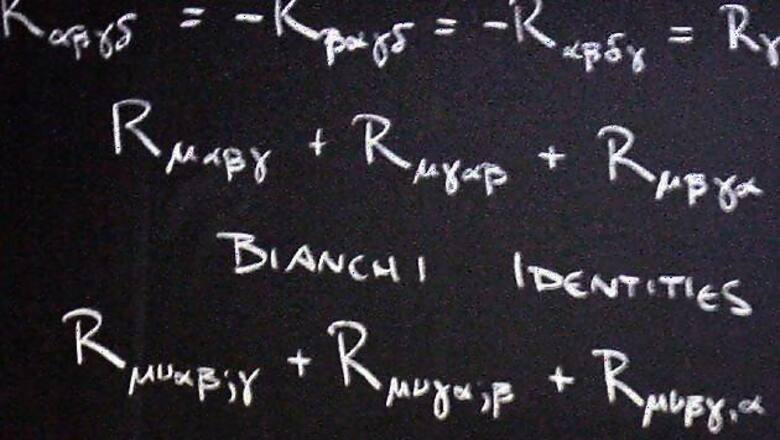 R αβγδ = -R βαγδ = -R αβδγ = R γ
R μαβγ + R μγαβ + R μβγα
BIANCHI IDENTITIES
R μναβ;γ + R μνγα;β + R μνβγ,α